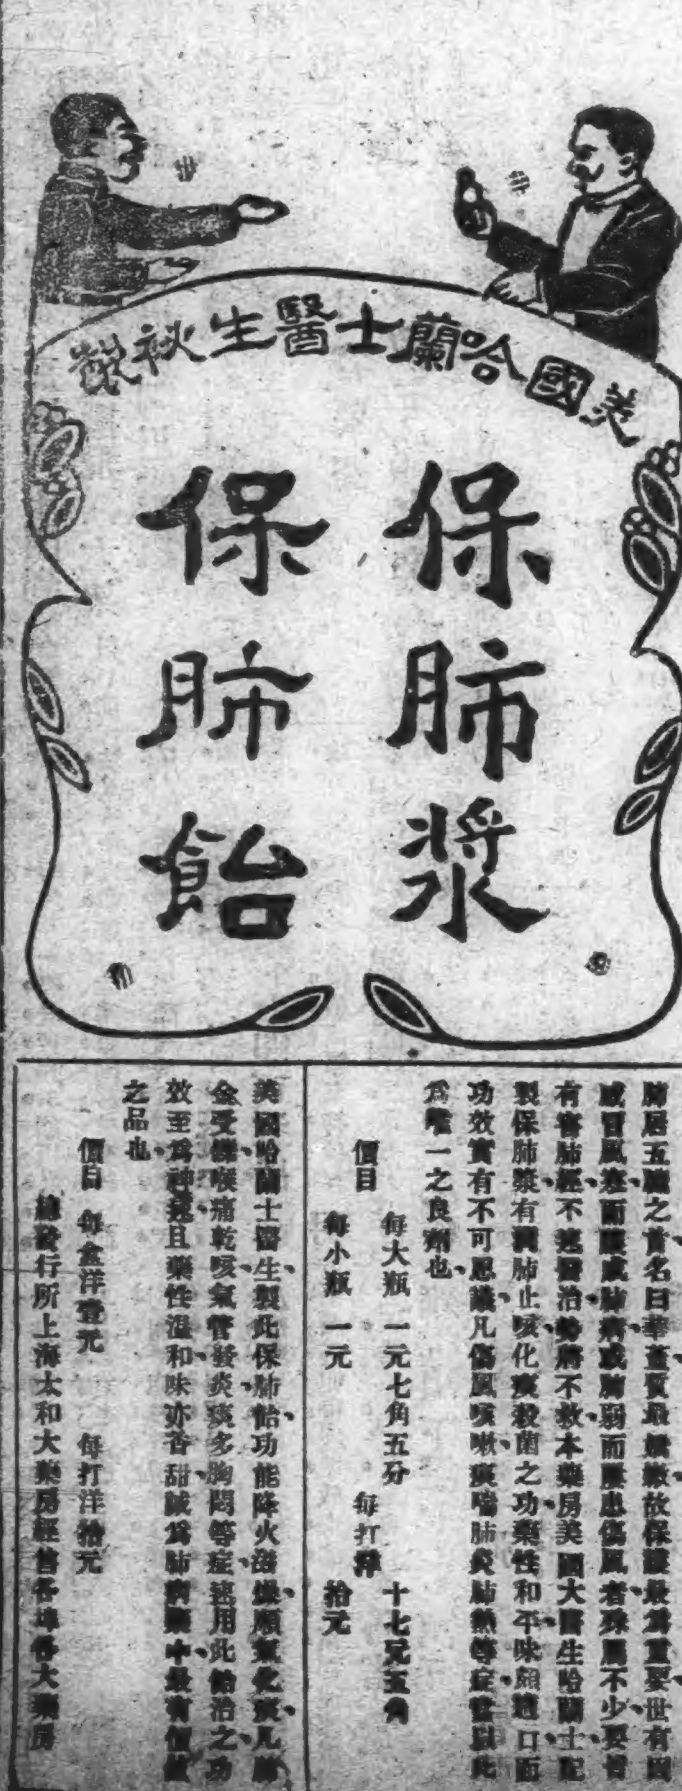 美國哈蘭士醫生秘製
保肺漿
保肺飴
肺居五臟之首名曰華蓋質最嬌嫩故保護最為重要世有因
感冒風寒而釀成肺病或肺弱而屢患傷風者殊屬不少要皆
有害肺經不速醫治勢將不救本藥房美國大醫生哈蘭士配
製保肺漿有潤肺止咳化痰殺菌之功藥性和平味頗適口而
功效實有不可思議凡傷風咳嗽痰喘肺炎肺熱等症當以此
為唯一之良劑也
價目 每大瓶 一元七角五分 每打洋 十七元五角
每小瓶 一元 拾元
美國哈蘭士醫生製此保肺飴功能降火潤燥順氣化痰凡肺
金受燥喉痛乾咳氣管發炎痰多胸悶等症速用此飴治之功
效至為神速且藥性溫和味亦香甜誠為肺病藥中最有價值
之品也
價目 每盒洋壹元 每打洋拾元
總發行所上海太和大藥房經售各埠各大藥房